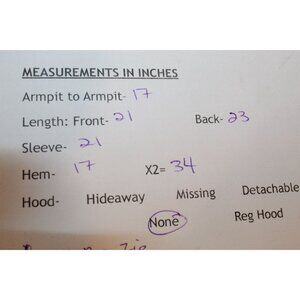 MEASUREMENTS IN INCHES
Armpit to Armpit- 17
Length: Front- 21 Back- 23
Sleeve- 21
Hem- 17 X2= 34
Hood- Hideaway Missing Detachable
None Reg Hood